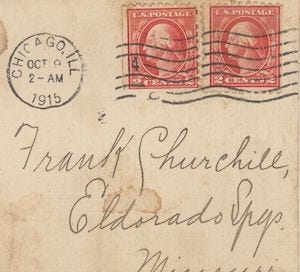 CHICAGO, ILL
OCT 9
2-AM
1915
U.S. POSTAGE U.S. POSTAGE
2 CENTS 2 2 CENTS 2
Frank Churchill,
Eldorado Spgs.
Missouri